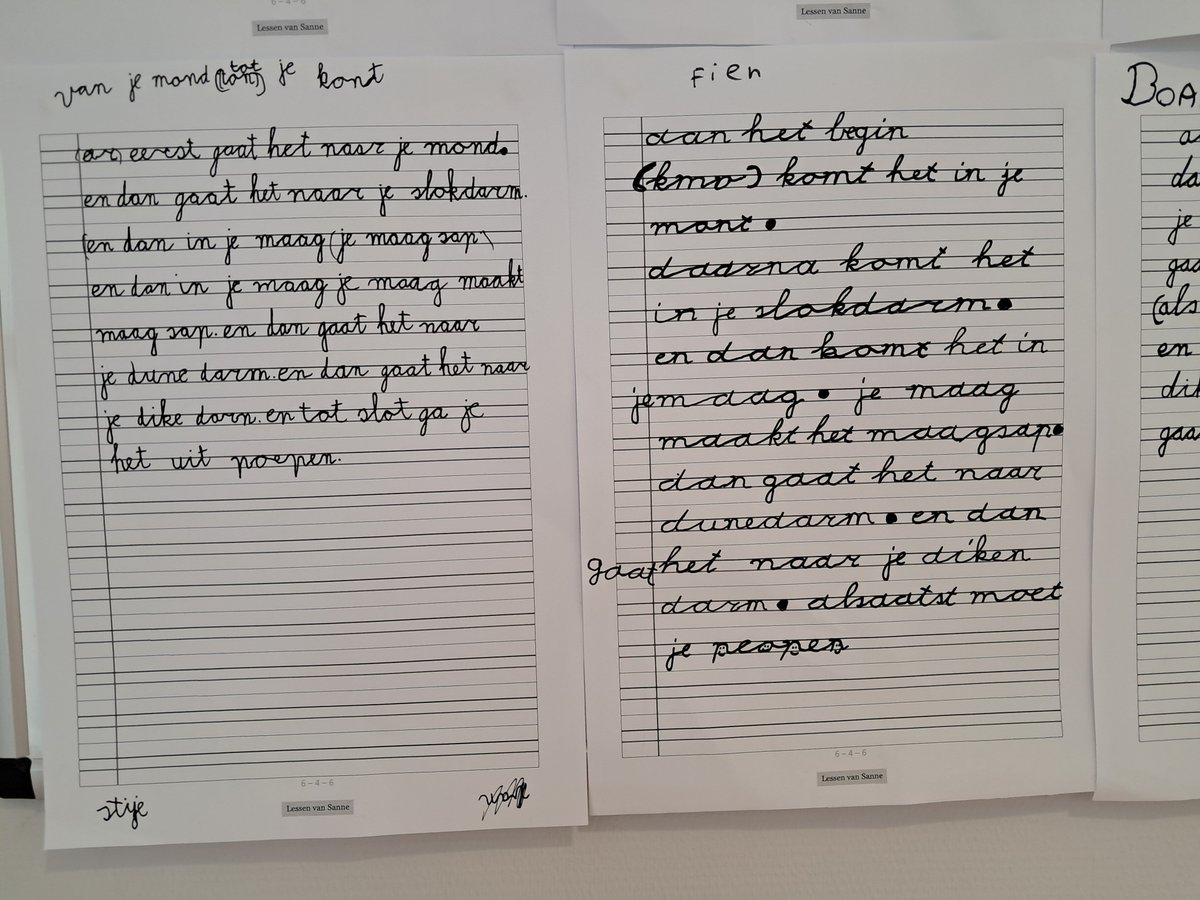 6-4-6
Lessen van Sanne
Lessen van Sanne
van je mond (kont) tot je kont
(ar) eerst gaat het naar je mond.
en dan gaat het naar je slokdarm.
(en dan in je maag (je maag sap)
en dan in je maag je maag maakt
maag sap. en dan gaat het naar
je dune darm. en dan gaat het naar
je dike darn. en tot slot ga je
het uit poepen.
6-4-6
Lessen van Sanne
stije
Fien
aan het begin
(kmo) komt het in je
mont.
daarna komt het
in je slokdarm.
en dan komt het in
je maag. je maag
maakt het maagsap.
dan gaat het naar
dunedarm. en dan
gaat het naar je diken
darm. alsaatst moet
je peopen
6-4-6
Lessen van Sanne
BOA
a
da
je
gaa
(als
en
dik
gaa